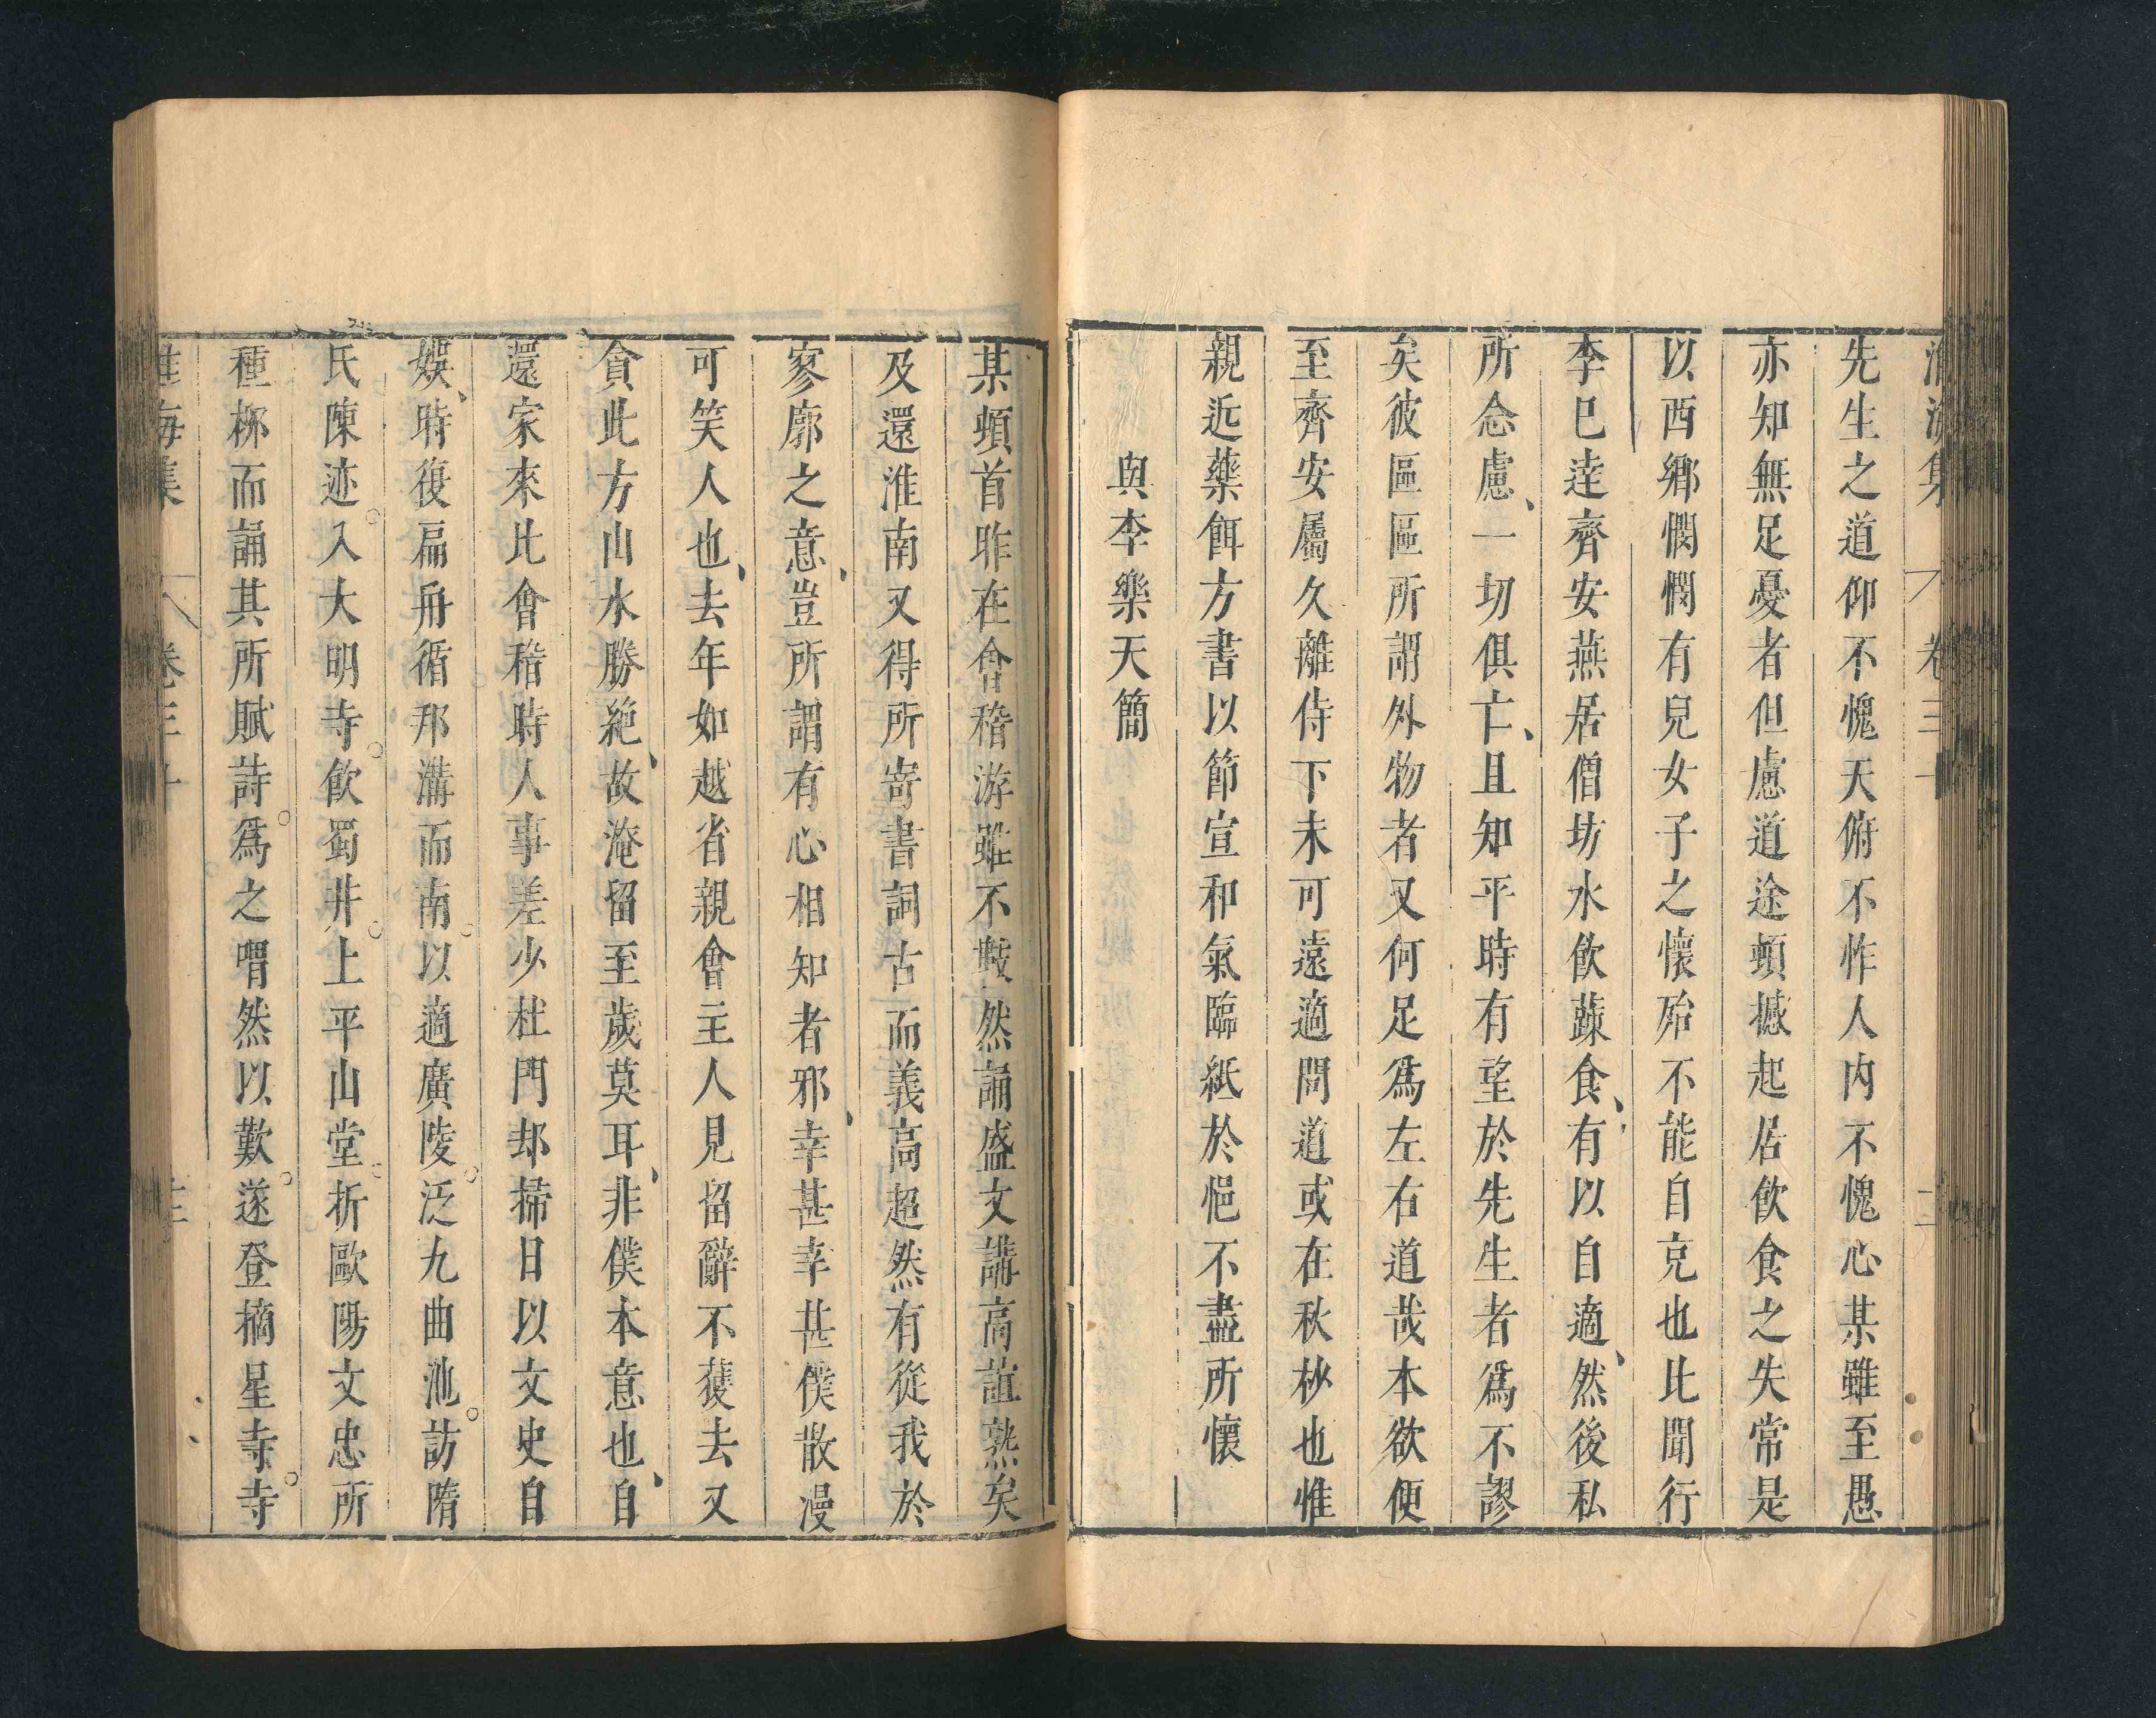 淮海集 卷三十 二
先生之道仰不愧天俯不怍人内不愧心某雖至愚
亦知無足憂者但慮道途頓撼起居飲食之失常是
以西鄉惘惘有兒女子之懷殆不能自克也比聞行
李已逹齊安燕居僧坊水飲蔬食有以自適然後私
所念慮一切俱亡且知平時有望於先生者爲不謬
矣彼區區所謂外物者又何足爲左右道哉本欲便
至齊安屬久離侍下未可遠適問道或在秋杪也惟
親近藥餌方書以節宣和氣臨紙於悒不盡所懷
與李樂天簡
某頓首昨在會稽游雖不數然誦盛文講高誼熟矣
及還淮南又得所寄書詞古而義高超然有從我於
寥廓之意豈所謂有心相知者邪幸甚幸甚僕散漫
可笑人也去年如越省親會主人見留辭不獲去又
貪此方山水勝絶故淹留至歲莫耳非僕本意也自
還家來比會稽時人事差少杜門却掃日以文史自
娛時復扁舟循邗溝而南以適廣陵泛九曲池訪隋
氏陳迹入大明寺飲蜀井上平山堂折歐陽文忠所
種柳而誦其所賦詩爲之喟然以歎遂登摘星寺寺
淮海集 卷三十